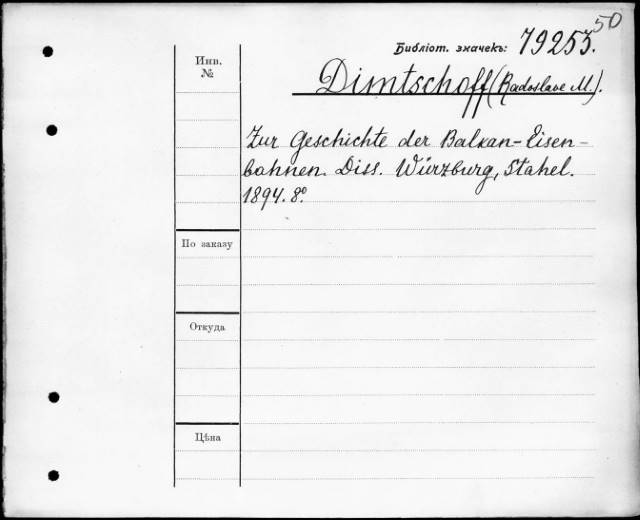 50
Инв. №
Библіот. значекъ: 79253.
Dimtschoff (Radoslave M.).
Zur Geschichte der Balkan-Eisen-
bahnen. Diss. Würzburg, Stahel.
1894. 8º.
По заказу
Откуда
Цѣна